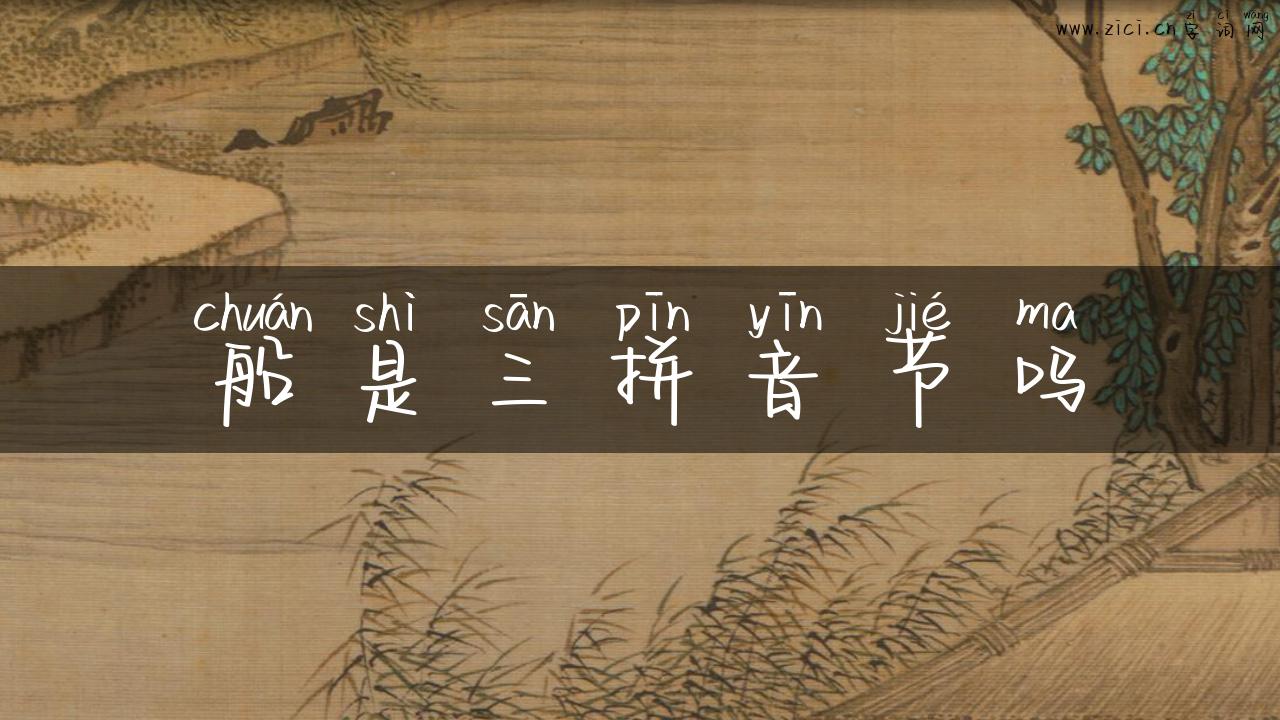 zì cí wǎng
www.zici.cn字词网
chuán shì sān pīn yīn jié ma
船是三拼音节吗